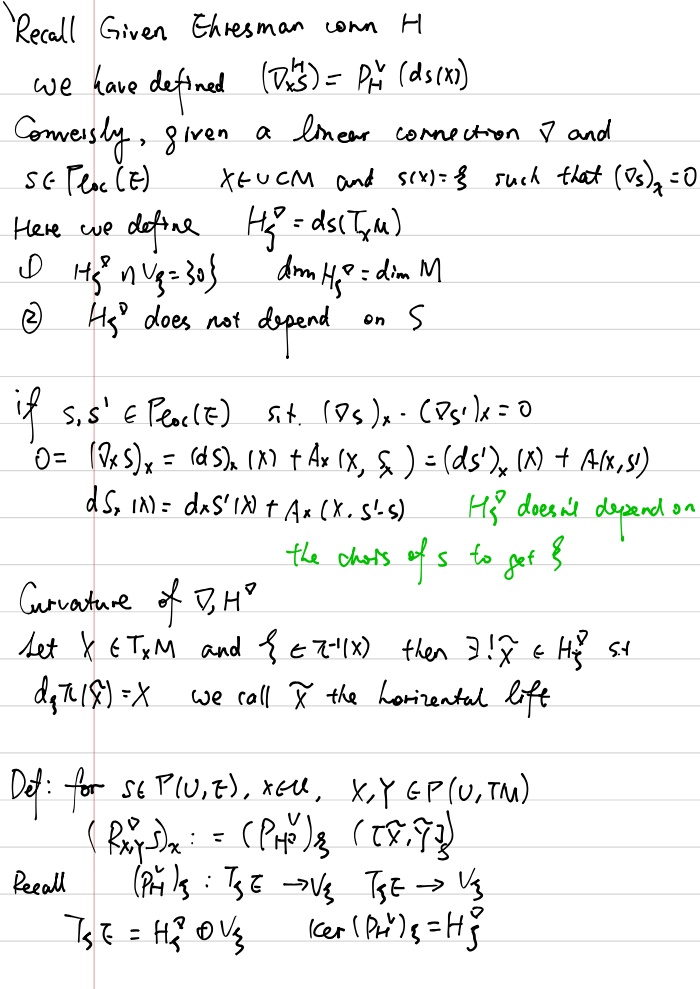 Recall Given Ehresman conn H
we have defined (∇ₓᴴs) = P_H^V (ds(X))
Conversly, given a linear connection ∇ and
s∈Γloc(E) X∈U⊂M and s(x)=ξ such that (∇s)ₓ=0
Here we define H_ξ^∇ = ds(TₓM)
① H_ξ^∇ ∩ V_ξ = {0} dim H_ξ^∇ = dim M
② H_ξ^∇ does not depend on S
if s,s' ∈ Γloc(E) s.t. (∇s)ₓ - (∇s')ₓ = 0
0 = (∇ₓs)ₓ = (ds)ₓ(X) + Aₓ(X, Sₓ) = (ds')ₓ(X) + A(X,s')
dsₓ(X) = dₓs'(X) + Aₓ(X, s'-s) H_ξ^∇ doesn't depend on
the chois of s to get ξ
Curvature of ∇, H^∇
Let X ∈ TₓM and ξ ∈ π⁻¹(x) then ∃! X̃ ∈ H_ξ^∇ s.t
d_ξπ(X̃) = X we call X̃ the horizental lift
Def: for s∈Γ(U,E), x∈U, X,Y ∈Γ(U,TM)
(R^∇_{X,Y}S)ₓ := (P_{H^∇}^V)_ξ ([X̃,Ỹ]_ξ)
Recall (P_H^V)_ξ : T_ξE → V_ξ T_ξE → V_ξ
T_ξE = H_ξ^∇ ⊕ V_ξ ker(P_H^V)_ξ = H_ξ^∇